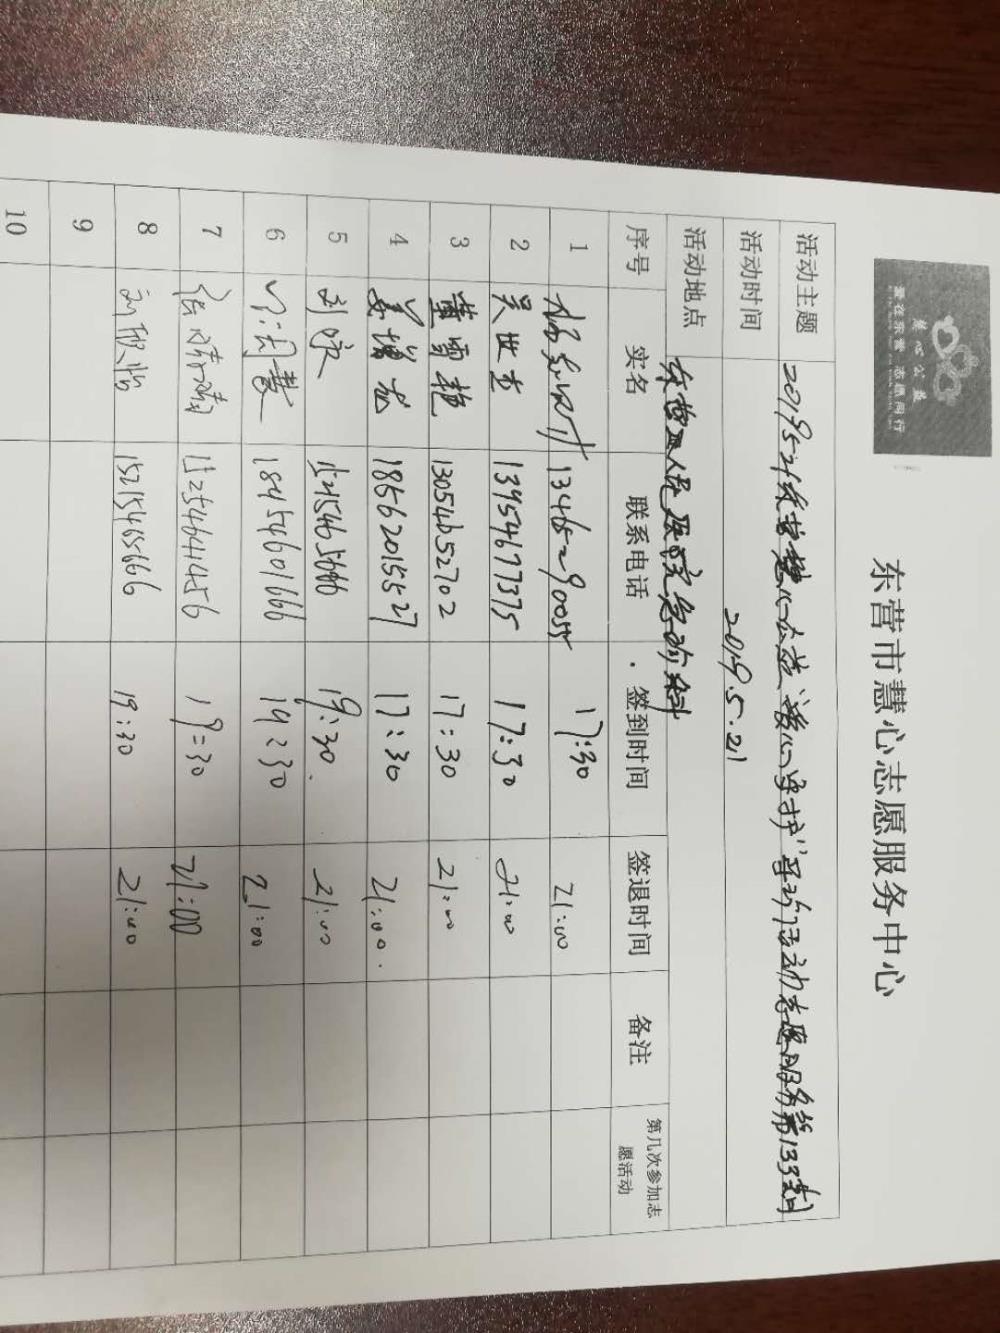 慧心公益
爱在东营 志愿同行
东营市慧心志愿服务中心
活动主题 2019.5.21东营慧心公益"暖心守护"导诊活动志愿服务第133期
活动时间 2019.5.21
活动地点 东营区人民医院急诊科
序号 实名 联系电话 签到时间 签退时间 备注 第几次参加志愿活动
1 13465290055 17:30 21:00
2 吴世杰 13954677375 17:30 21:00
3 董雪艳 13054652702 17:30 21:00
4 姜增龙 18562015527 17:30 21:00.
5 刘 15215465666 19:30. 21:00
6 慧 18454601666 19:30 21:00
7 张 15254641456 19:30 21:00
8 刘欣怡 15215465666 19:30 21:00
9
10